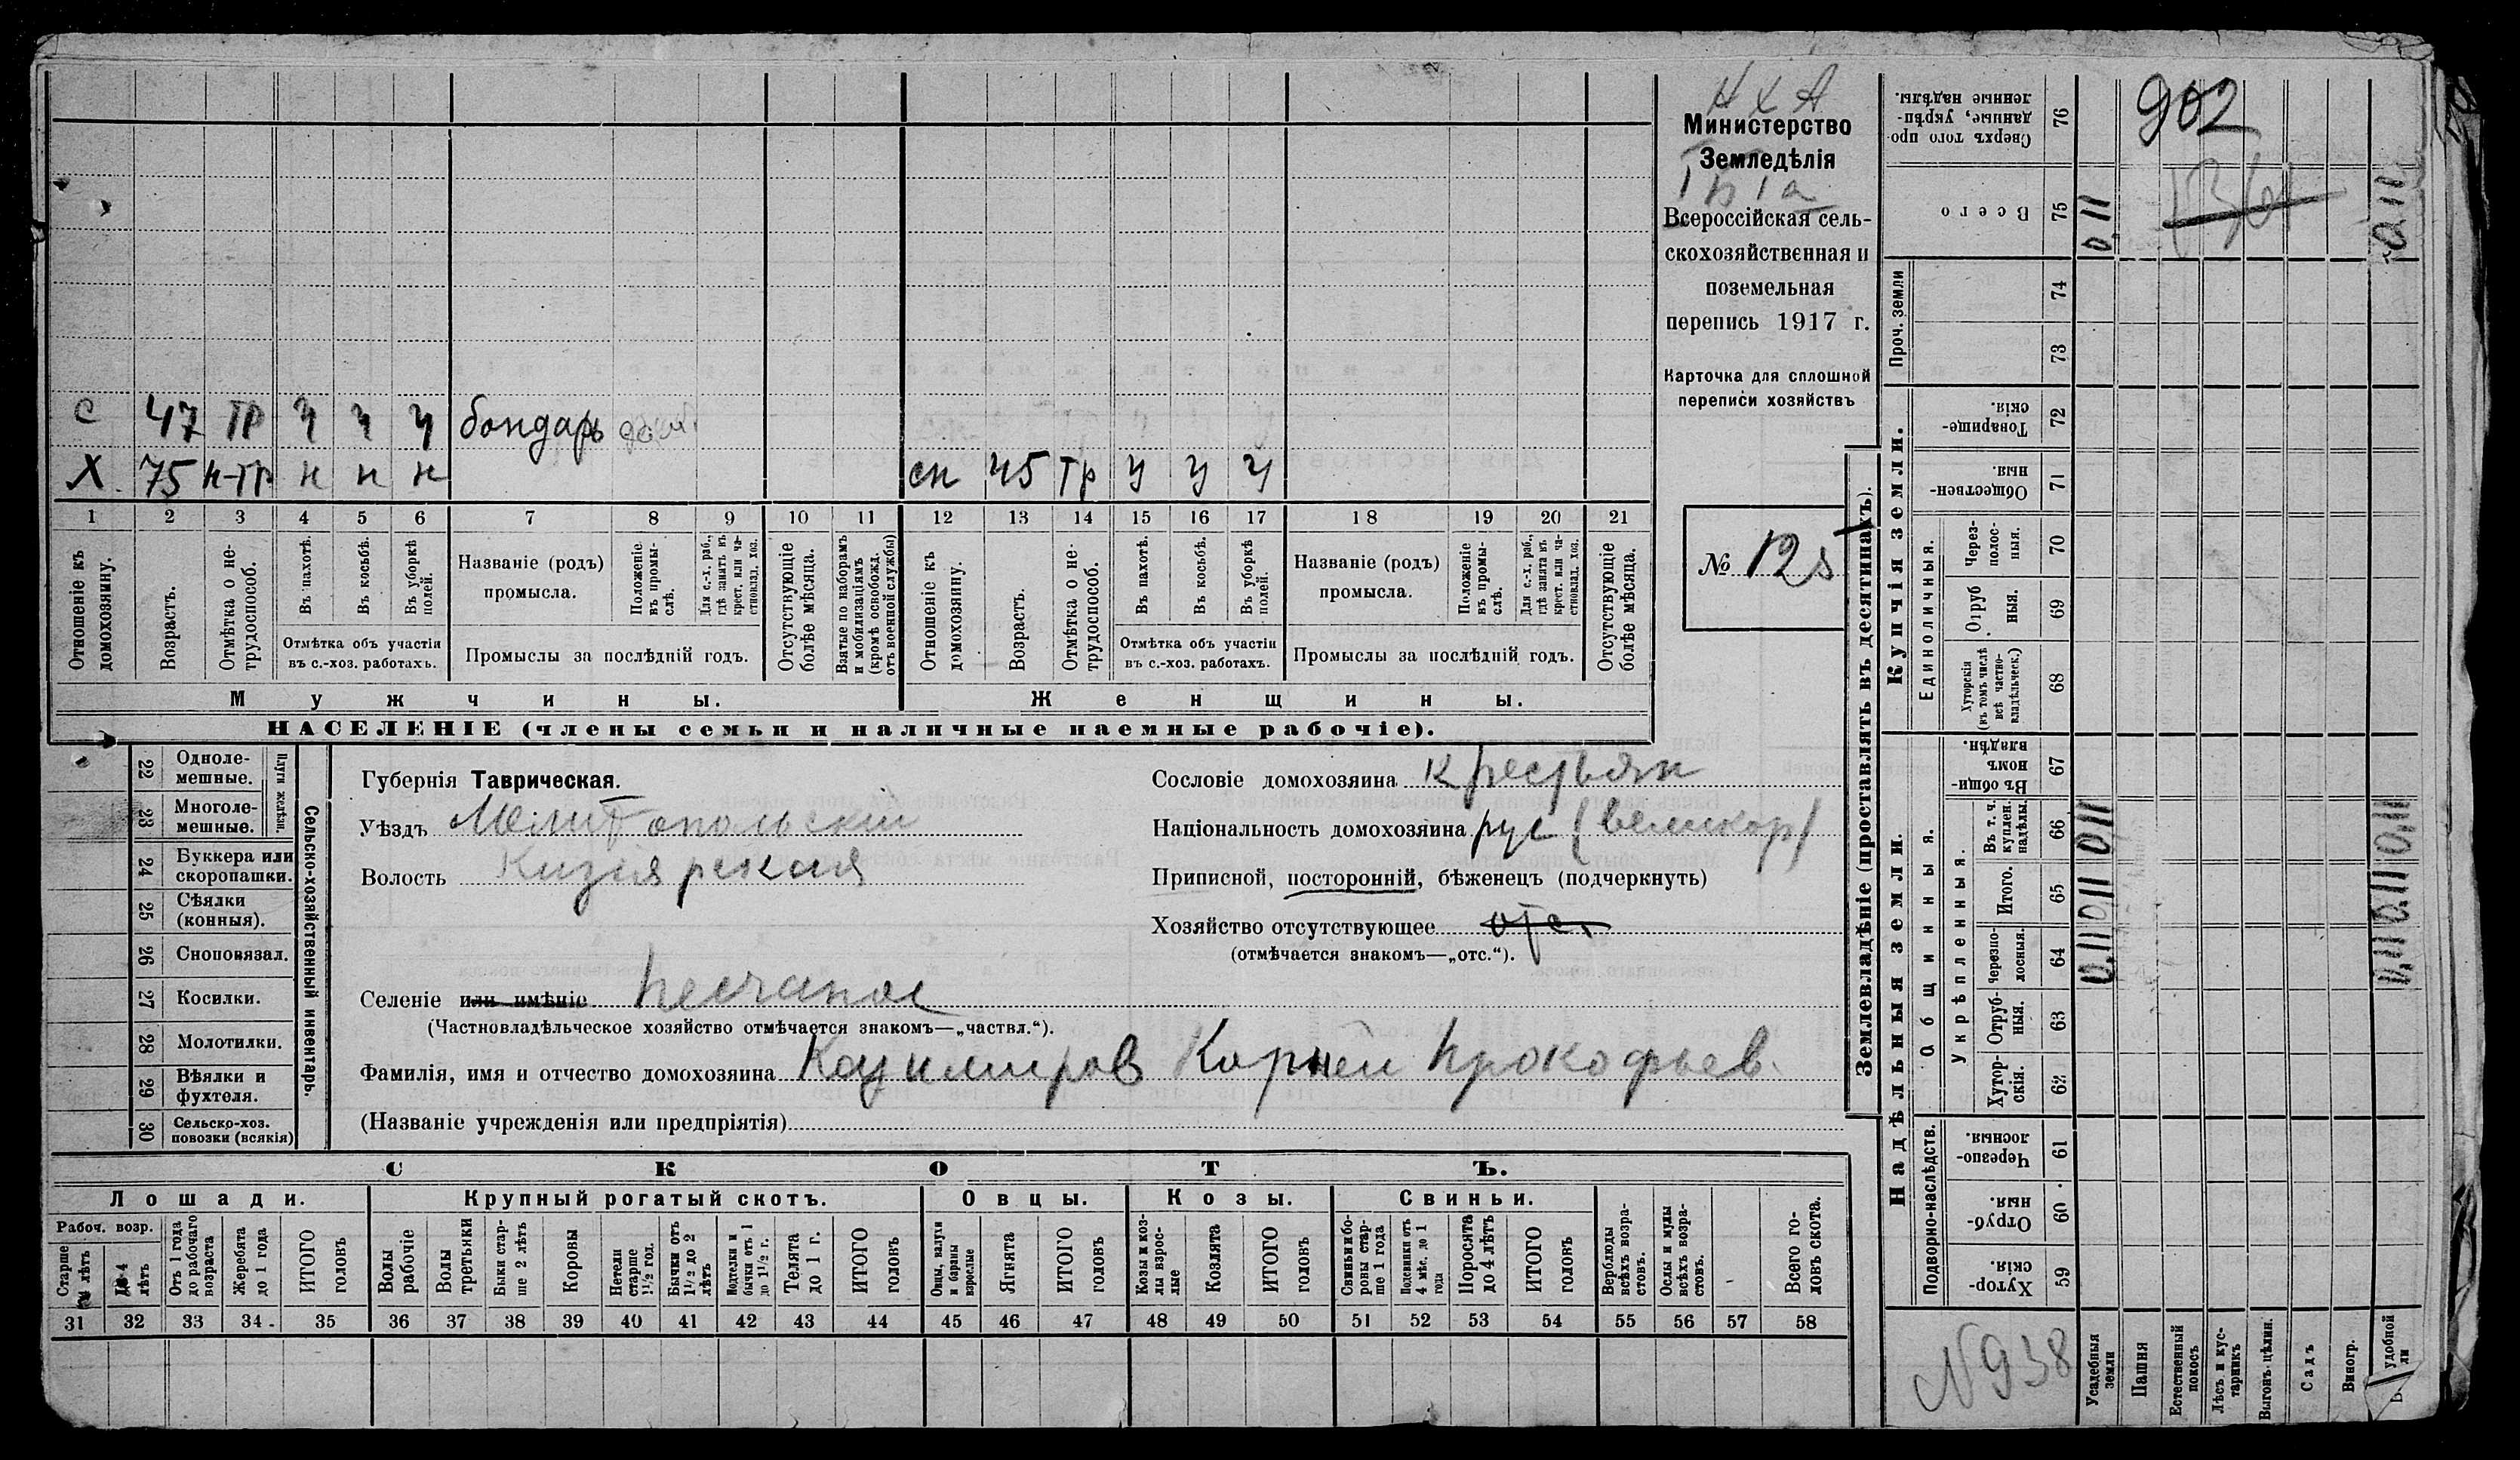 Н Х А
Министерство
Земледѣлія
Всероссійская сель-
скохозяйственная и
поземельная
перепись 1917 г.
Карточка для сплошной
переписи хозяйствъ
№ 125
С 47 тр ч ч ч бондарь
Х 75 н-тр н н н
сн 45 тр ч ч ч
1 2 3 4 5 6 7 8 9 10 11 12 13 14 15 16 17 18 19 20 21
Отношеніе къ домохозяину.
Возрастъ.
Отмѣтка о не-трудоспособ.
Въ пахотѣ.
Въ косьбѣ.
Въ уборкѣ полей.
Отмѣтка объ участіи
въ с.-хоз. работахъ.
Названіе (родъ)
промысла.
Положеніе въ промы-слѣ.
Для с.-х. раб., гдѣ занятъ въ крест. или ча-стновлад. хоз.
Промыслы за послѣдній годъ.
Отсутствующіе болѣе мѣсяца.
Взятые по наборамъ и мобилизаціямъ (кромѣ освобожд. отъ военной службы)
Отношеніе къ домохозяину.
Возрастъ.
Отмѣтка о не-трудоспособ.
Въ пахотѣ.
Въ косьбѣ.
Въ уборкѣ полей.
Отмѣтка объ участіи
въ с.-хоз. работахъ.
Названіе (родъ)
промысла.
Положеніе въ промы-слѣ.
Для с.-х. раб., гдѣ занята въ крест. или ча-стновлад. хоз.
Промыслы за послѣдній годъ.
Отсутствующіе болѣе мѣсяца.
Мужчины.
Женщины.
НАСЕЛЕНІЕ (члены семьи и наличные наемные рабочіе).
22 Одноле-мешные.
23 Многоле-мешные.
Плуги желѣзн.
24 Буккера или скоропашки.
25 Сѣялки (конныя).
26 Сноповязал.
27 Косилки.
28 Молотилки.
29 Вѣялки и фухтеля.
30 Сельско-хоз. повозки (всякія)
Сельско-хозяйственный инвентарь.
Губернія Таврическая.
Уѣздъ Мелитопольскій
Волость Кизіярская
Сословіе домохозяина крестьян
Національность домохозяина рус (великор)
Приписной, посторонній, бѣженецъ (подчеркнуть)
Хозяйство отсутствующее отс.
(отмѣчается знакомъ—„отс.“).
Селеніе или имѣніе Песчаное
(Частновладѣльческое хозяйство отмѣчается знакомъ—„частвл.“).
Фамилія, имя и отчество домохозяина Казимиров Корней Прокофьев.
(Названіе учрежденія или предпріятія)
СКОТЪ.
Лошади.
Крупный рогатый скотъ.
Овцы.
Козы.
Свиньи.
Рабоч. возр.
Старше лѣтъ
До 4 лѣтъ
Отъ 1 года до рабочаго возраста
Жеребята до 1 года
ИТОГО головъ
Волы рабочіе
Волы третьяки
Быки стар-ше 2 лѣтъ
Коровы
Нетели старше 1½ год.
Бычки отъ 1½ до 2 лѣтъ
Подтелки и бычки отъ 1 до 1½ г.
Телята до 1 г.
ИТОГО головъ
Овцы, валухи и бараны взрослые
Ягнята
ИТОГО головъ
Козы и коз-лы взрос-лые
Козлята
ИТОГО головъ
Свиньи и бо-ровы стар-ше 1 года
Подсвинки отъ 4 мѣс. до 1 года
Поросята до 4 лѣтъ
ИТОГО головъ
Верблюды всѣхъ возра-стовъ.
Ослы и мулы всѣхъ возра-стовъ.
Всего го-ловъ скота.
31 32 33 34 35 36 37 38 39 40 41 42 43 44 45 46 47 48 49 50 51 52 53 54 55 56 57 58
Землевладѣніе (проставлять въ десятинахъ).
Надѣльныя земли.
Купчія земли.
Проч. земли
Сверхъ того про-данные, укрѣп-ленные надѣлы. 76
Всего 75
74
73
Товарище-скія. 72
Обществен-ныя. 71
Единоличныя.
Через-полос-ныя. 70
Отруб ныя. 69
Хуторскія (въ томъ числѣ всѣ частно-владѣльческ.) 68
Въ общи-номъ владѣн. 67
Общинныя.
Укрѣпленныя.
Въ т. ч. куплен. надѣлы. 66
Итого. 65
Черезпо-лосныя. 64
Отруб-ныя. 63
Хутор-скія. 62
Подворно-наслѣдств.
Черезпо-лосныя. 61
Отруб-ныя. 60
Хутор-скія. 59
902
0,11
0,11
0,11 0,11 0,11
0,11 0,11 0,11
N 938
Усадебныя земли
Пашня
Естественный покосъ
Лѣсъ и кус-тарникъ
Выгонъ цѣлин.
Садъ
Виногр.
удобной
ли